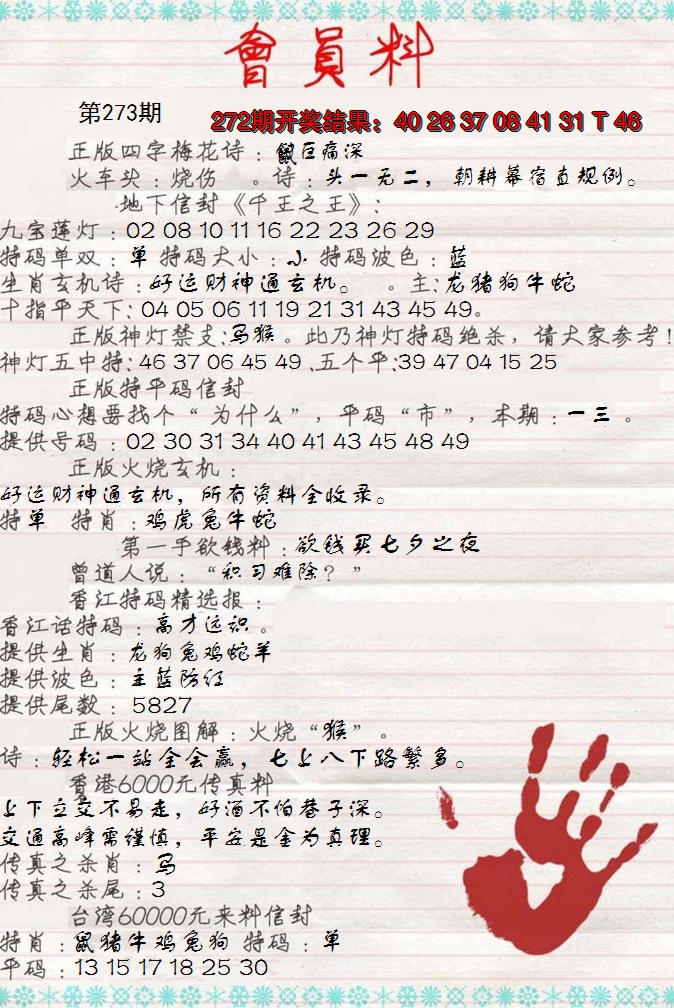 會員料
第273期
272期开奖结果：40 26 37 08 41 31 T 46
正版四字梅花诗：鼠巨痛深
火车头：烧伤 。诗：头一无二，朝耕暮宿直规例。
地下信封《千王之王》：
九宝莲灯：02 08 10 11 16 22 23 26 29
特码单双：单 特码大小：小 特码波色：蓝
生肖玄机诗：好运财神通玄机。 。主：龙猪狗牛蛇
十指平天下：04 05 06 11 19 21 31 43 45 49。
正版神灯禁支：马猴。此乃神灯特码绝杀，请大家参考！
神灯五中特：46 37 06 45 49 .五个平：39 47 04 15 25
正版特平码信封
特码心想要找个“为什么”，平码“市”，本期：一三。
提供号码：02 30 31 34 40 41 43 45 48 49
正版火烧玄机：
好运财神通玄机，所有资料全收录。
特单 特肖：鸡虎兔牛蛇
第一手欲钱料：欲钱买七夕之夜
曾道人说：“积习难除？”
香江特码精选报：
香江话特码：高才远识。
提供生肖：龙狗兔鸡蛇羊
提供波色：主蓝防红
提供尾数：5827
正版火烧图解：火烧“猴”。
诗：轻松一站全会赢，七上八下路繁多。
香港6000元传真料
上下立交不易走，好酒不怕巷子深。
交通高峰需谨慎，平安是金为真理。
传真之杀肖：马
传真之杀尾：3
台湾60000元来料信封
特肖：鼠猪牛鸡兔狗 特码：单
平码：13 15 17 18 25 30